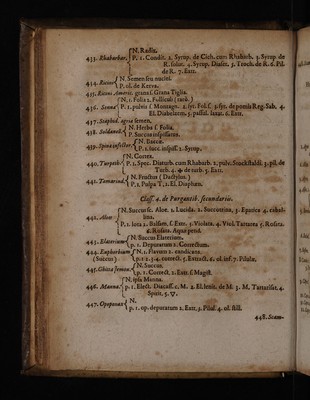 N. Radix.
433. Rhabarbar. P. 1. Condit. 2. Syrup. de Cich. cum Rhabarb. 3. Syrup. de
R. solut. 4. Syrup. Diaser. 5. Troch. de R. 6. Pil.
de R. 7. Extr.
434. Ricini N. Semen seu nuclei.
P. ol. de Kerva.
435. Ricini Americ. grana s. Grana Tiglia.
N. 1. Folia 2. Folliculi
436. Senna P. 1. pulvis 2. syr. 3. syr. de pomis Reg. Sab. 4.
El. Diasebesten. 5. laxat. 6. Extr.
437. Staphid. agria semen.
438. Soldanel. N. Herba s. Folia.
P. Succus inspissatus.
439. Spina infector. N. Baccæ.
P. 1. succ. inspiss. 2. Syrup.
N. Cortex.
440. Turpeth. P. 1. Spec. Diaturb. cum Rhabarb. 2. pulv. 3. pil. de
Turb. 4. de turb. 5. Extr.
441. Tamarind. N. Fructus (Dactylus.)
P. 1. Pulpa T. 2. El. Diaphœn.
Class. 4. de Purgantib. secundariis.
N. Succus sc. Aloe. 1. Lucida. 2. Succotrina. 3. Epatica 4. cabal-
lina.
442. Aloes P. 1. lota 2. Balsam. 3. Extr. 3. Violata. 4. Vitri. Tartara 5. Rosata.
6. Aquæ pend.
443. Elaterium N. Succus Elaterium.
P. 1. Depuratum 2. Correctum.
444. Euphorbium N. 1. Flavum 2. candicans.
(Succus) P. 1. 2. 3. 4. correct. 5. Extract. 6. ol. inf. 7. Pilulæ.
445. Ghitta Jemou. N. Succus.
P. 1. Correct. 2. Extr. s. Magist.
N. ipsa Manna.
446. Manna P. 1. Elect. Diacass. c. M. 2. El. lenit. de M. 3. M. Tartarisat. 4.
Spirit. 5. ▽.
447. Opopanax N.
P. 1. op. depuratum 2. Extr. 3. Pilul. 4. ol. still.
448. Scam-